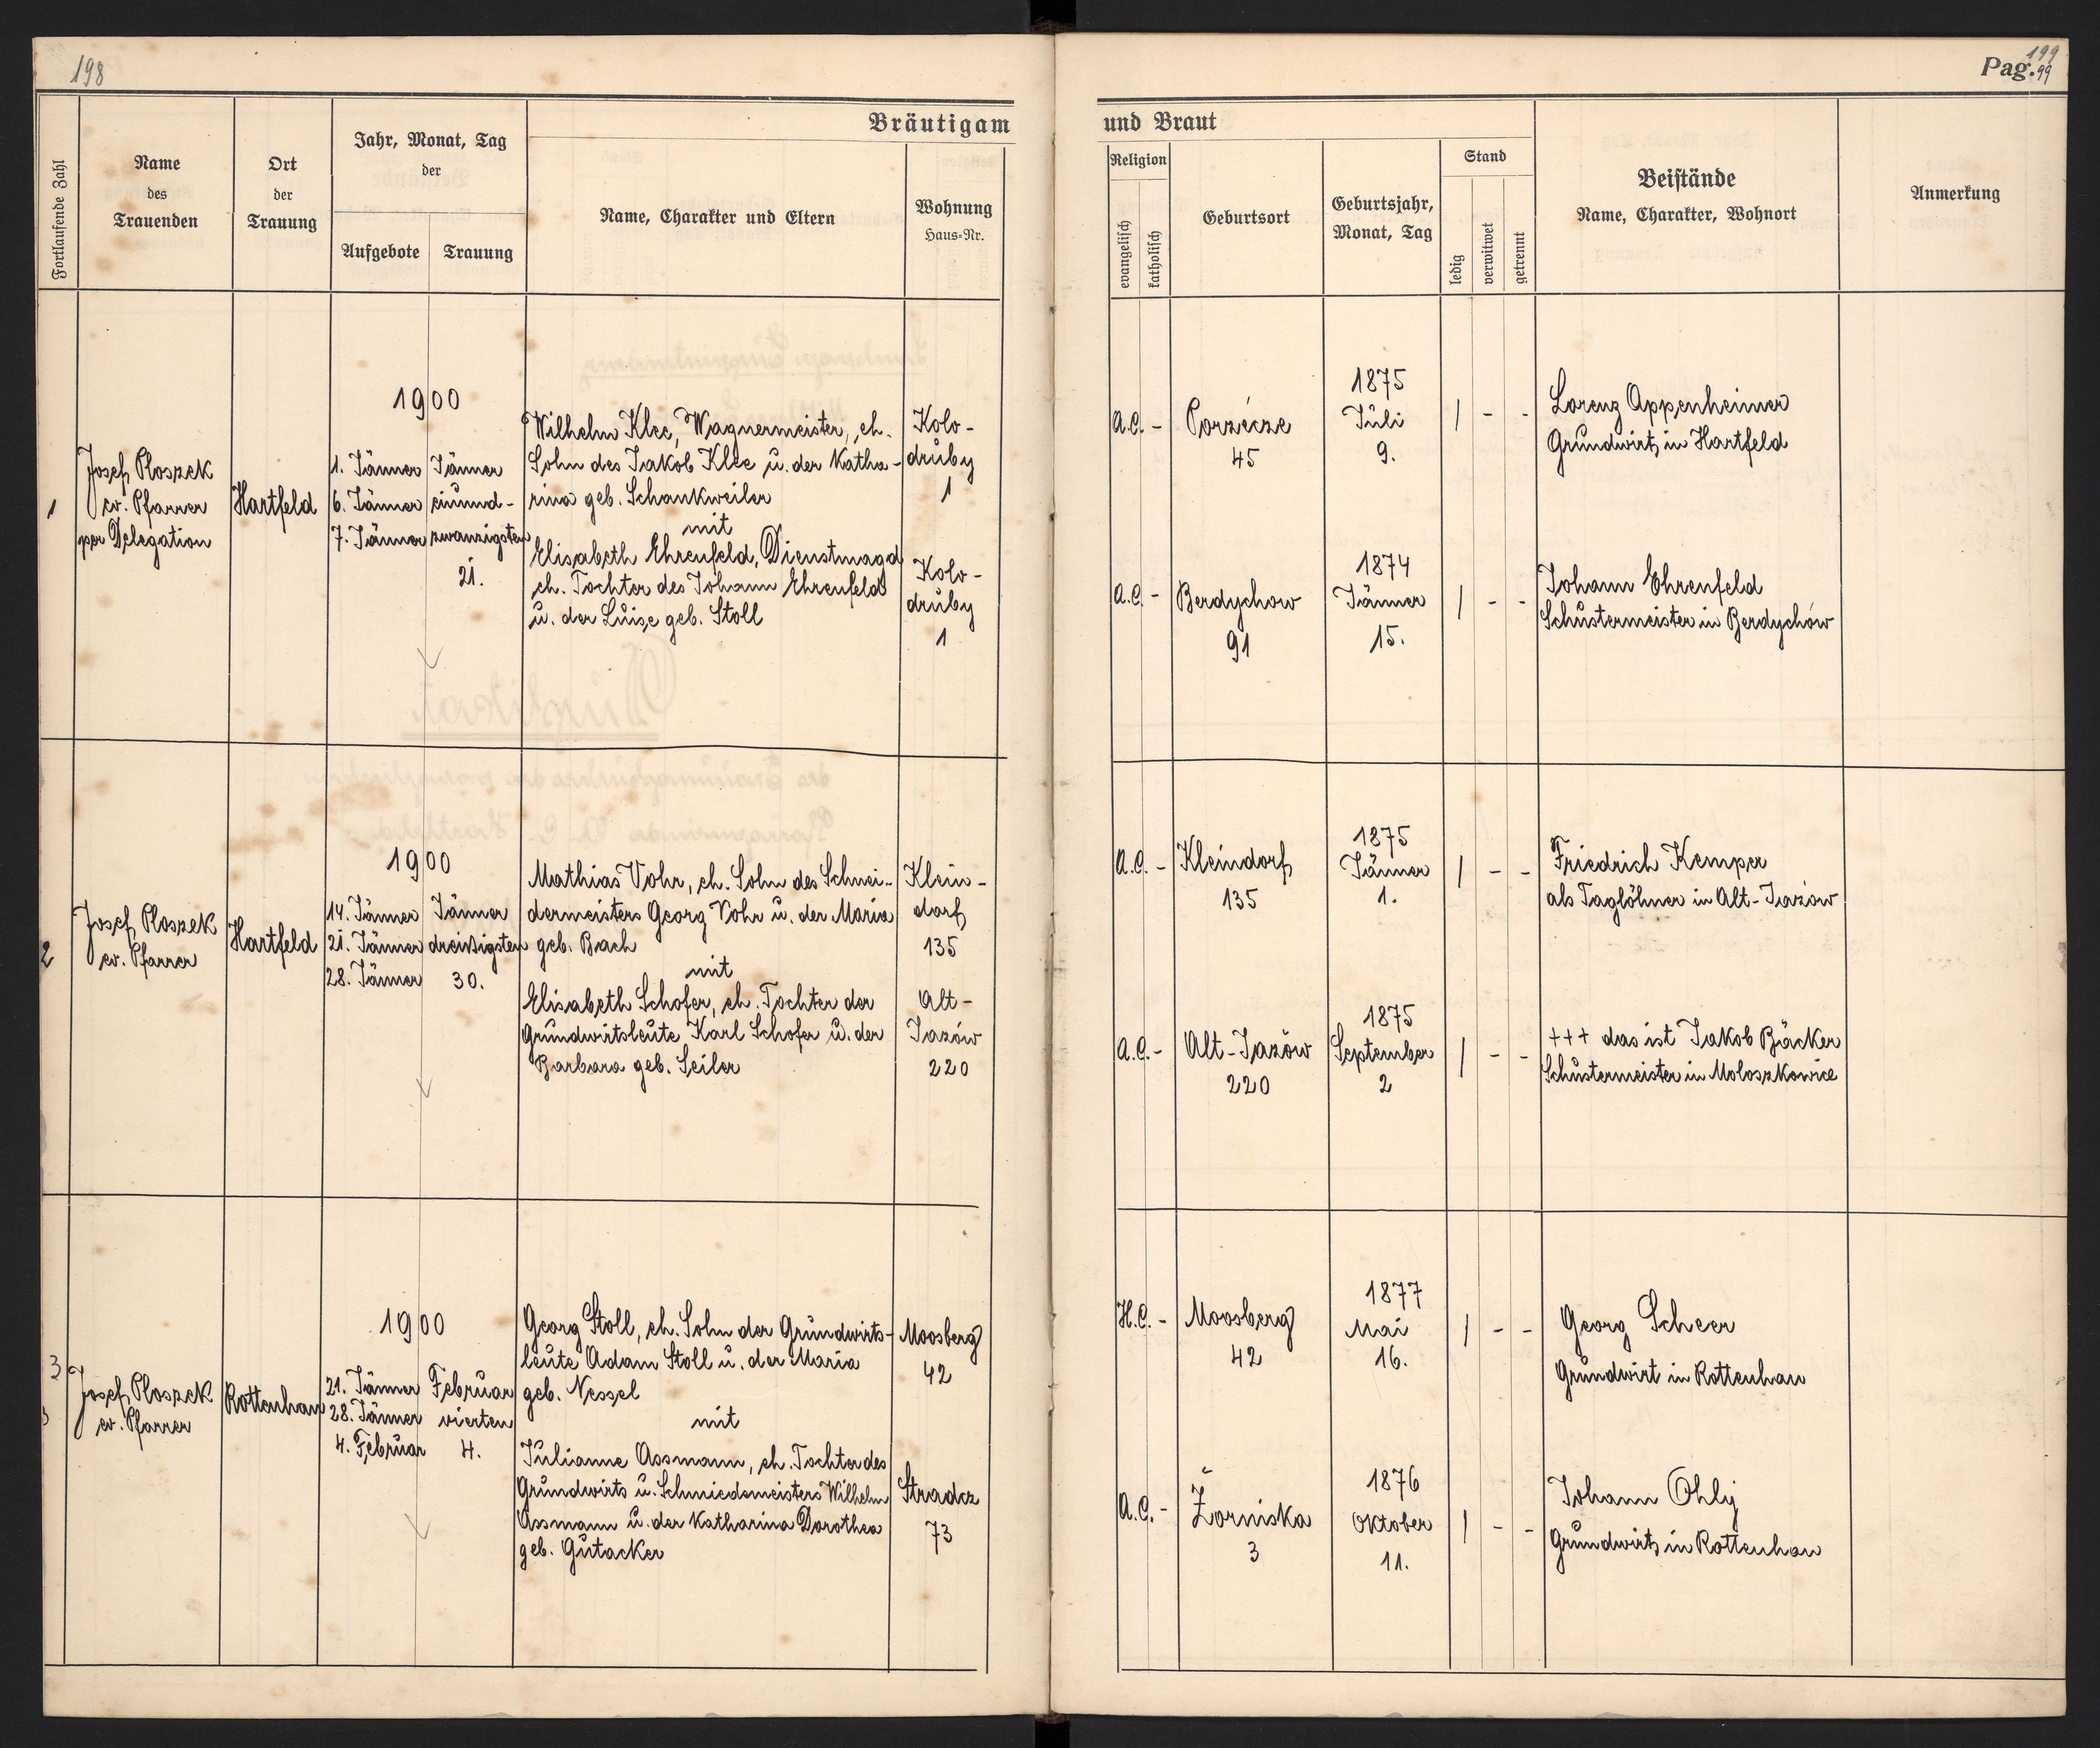 198
Pag. 199
99
Bräutigam
und Braut
Fortlaufende Zahl
Name
des
Trauenden
Ort
der
Trauung
Jahr, Monat, Tag
der
Aufgebote
Trauung
Name, Charakter und Eltern
Wohnung
Haus-Nr.
Religion
evangelisch
katholisch
Geburtsort
Geburtsjahr,
Monat, Tag
Stand
ledig
verwitwet
getrennt
Beistände
Name, Charakter, Wohnort
Anmerkung
1
Josef Ploszek
ev. Pfarrer
per Delegation
Hartfeld
1900
1. Jänner
6. Jänner
7. Jänner
Jänner
einund-
zwanzigsten
21.
Wilhelm Klee, Wagnermeister, eh.
Sohn des Jakob Klee u. der Katha-
rina geb. Schankweiler
mit
Elisabeth Ehrenfeld, Dienstmagd
eh. Tochter des Johann Ehrenfeld
u. der Luise geb. Stoll
Kolo-
druby
1
Kolo-
druby
1
A.C. -
Porzécze
45
1875
Juli
9.
/ - -
Lorenz Appenheimer
Grundwirt in Hartfeld
A.C. -
Berdychow
91
1874
Jänner
15.
/ - -
Johann Ehrenfeld
Schustermeister in Berdychów
2
Josef Ploszek
ev. Pfarrer
Hartfeld
1900
14. Jänner
21. Jänner
28. Jänner
Jänner
dreißigsten
30.
Mathias Vohr, eh. Sohn des Schnei-
dermeisters Georg Vohr u. der Maria
geb. Bach
mit
Elisabeth Schofer, eh. Tochter der
Grundwirtsleute Karl Schofer u. der
Barbara geb. Seiler
Klein-
dorf
135
Alt-
Jazów
220
A.C. -
Kleindorf
135
1875
Jänner
1.
/ - -
Friedrich Kemper
als Taglöhner in Alt-Jazów
A.C. -
Alt-Jazów
220
1875
September
2
/ - -
+++ das ist Jakob Bäcker
Schustermeister in Moloszkowice
3
Josef Ploszek
ev. Pfarrer
Rottenhan
1900
21. Jänner
28. Jänner
4. Februar
Februar
vierten
4.
Georg Stoll, eh. Sohn der Grundwirts-
leute Adam Stoll u. der Maria
geb. Nessel
mit
Julianne Assmann, eh. Tochter des
Grundwirts u. Schmiedsmeisters Wilhelm
Assmann u. der Katharina Dorothea
geb. Gutacker
Moosberg
42
Stradcz
73
H.C. -
Moosberg
42
1877
Mai
16.
/ - -
Georg Scheer
Grundwirt in Rottenhan
A.C. -
Żorniska
3
1876
Oktober
11.
/ - -
Johann Ohly
Grundwirt in Rottenhan